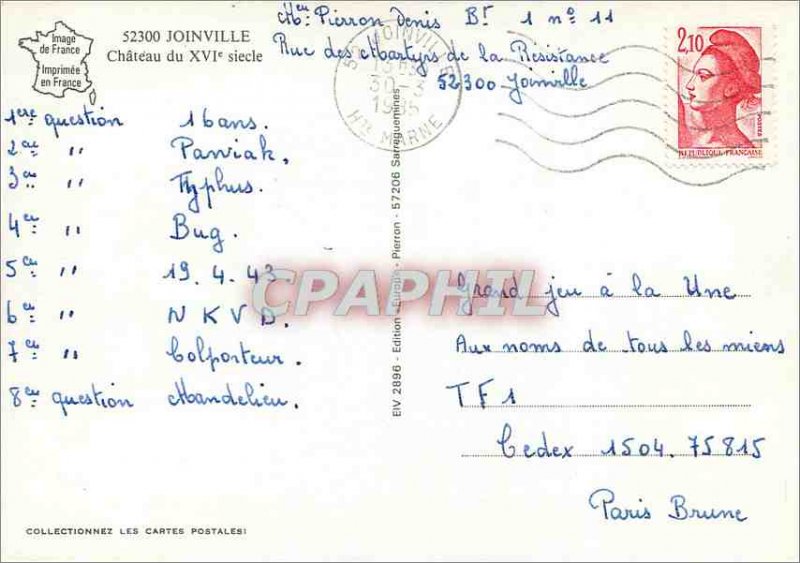 Image
de France
Imprimée
en France
52300 JOINVILLE
Château du XVIe siecle
Pierron Denis Bt 1 no 11
Rue des Martyrs de la Resistance
52300 Joinville
JOINVILLE
30
Hte MARNE
2,10
POSTES
REPUBLIQUE FRANÇAISE
1ere question 16ans.
2eu " Pawiak.
3eu " Typhus.
4eu " Bug.
5eu " 19.4.43.
6eu " NKVD.
7eu " Colporteur.
8eu question Mandelieu.
EIV 2896 - Edition «Europ» Pierron - 57206 Sarreguemines
CPAPHIL
Grand jeu à la Une
Aux noms de tous les miens
TF1
Cedex 1504.75815
Paris Brune
COLLECTIONNEZ LES CARTES POSTALES!